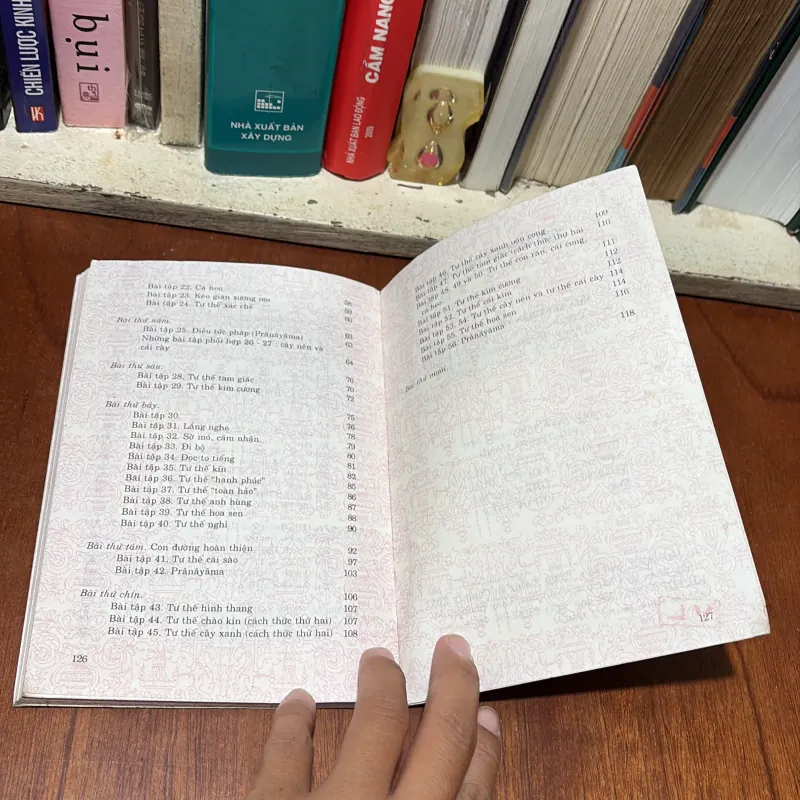 CHIẾN LƯỢC KINH
bụi
NHÀ XUẤT BẢN
XÂY DỰNG
CẨM NANG
NHÀ XUẤT BẢN LAO ĐỘNG
Bài tập 22. Cá heo.
Bài tập 23. Kéo giãn xương mu 58
Bài tập 24. Tư thế xác chế 59
60
Bài thứ năm.
Bài tập 25. Điều tức pháp (Prânâyâma) 63
Những bài tập phối hợp 26 - 27 : cây nến và 63
cái cây
64
Bài thứ sáu.
Bài tập 28. Tư thế tam giác 70
Bài tập 29. Tư thế kim cương 70
72
Bài thứ bảy.
Bài tập 30. 75
Bài tập 31. Lắng nghe 76
Bài tập 32. Sờ mó, cảm nhận 78
Bài tập 33. Đi bộ 79
Bài tập 34. Đọc to tiếng 80
Bài tập 35. Tư thế kín 81
Bài tập 36. Tư thế "hạnh phúc" 82
Bài tập 37. Tư thế "toàn hảo" 85
Bài tập 38. Tư thế anh hùng 86
Bài tập 39. Tư thế hoa sen 87
Bài tập 40. Tư thế nghỉ 88
90
Bài thứ tám. Con đường hoàn thiện 92
Bài tập 41. Tư thế cái sào 97
Bài tập 42. Prânâyâma 103
Bài thứ chín. 106
Bài tập 43. Tư thế hình thang 107
Bài tập 44. Tư thế chào kín (cách thức thứ hai) 107
Bài tập 45. Tư thế cây xanh (cách thức thứ hai) 108
126
Bài tập 46. Tư thế cây xanh uốn cong 109
Bài tập 47. Tư thế tam giác (cách thức thứ hai 110
Bài tập 48, 49 và 50. Tư thế con rắn, cái cung,
cá heo 111
Bài tập 51. Tư thế kim cương 112
Bài tập 52. Tư thế cái kìm 112
Bài tập 53, 54. Tư thế cây nến và tư thế cái cày 114
Bài tập 55. Tư thế hoa sen 114
Bài tập 56. Prânâyâma 116
Bài thứ mười. 118
127